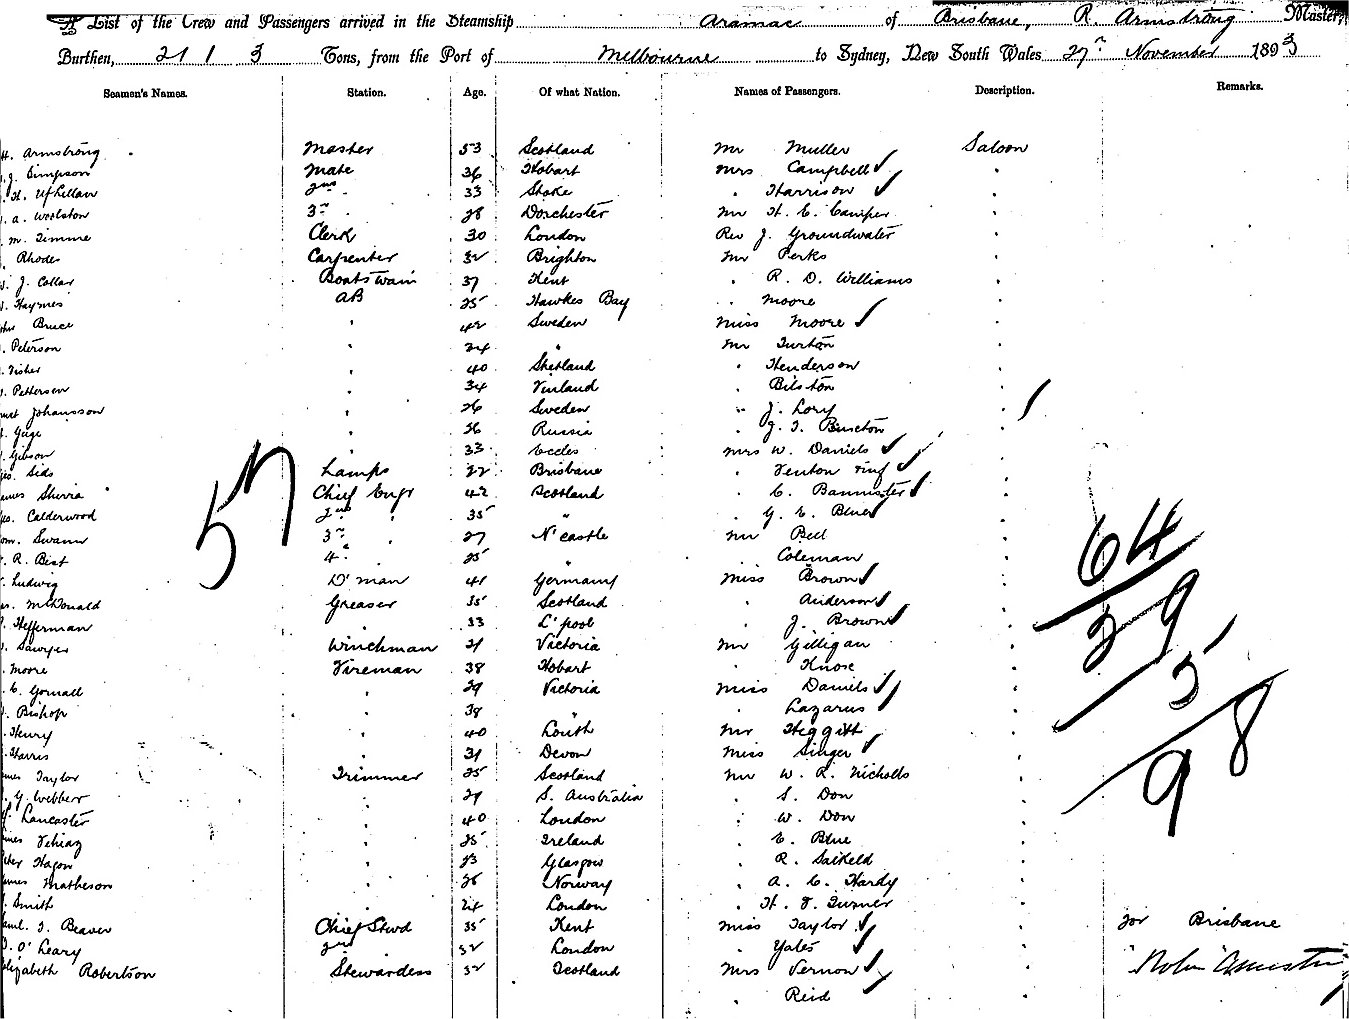 A List of the Crew and Passengers arrived in the Steamship Aramac of Brisbane, R. Armstrong Master,
Burthen, 2113 Tons, from the Port of Melbourne to Sydney, New South Wales 27th November 1893
Seamen's Names. Station. Age. Of what Nation. Names of Passengers. Description. Remarks.
H. Armstrong Master 53 Scotland Mr Muller Saloon
J. Simpson Mate 36 Hobart Mrs Campbell
2nd 33 Stoke " Harrison
A. Woolston 3rd 28 Dorchester Mr H. E.
M. Timme Clerk 30 London Rev J. Groundwater
Rhodes Carpenter 32 Brighton Mr Perks
J. Collar Boatswain 37 Kent " R. D. Williams
Haymes AB 25 Hawkes Bay " Moore
Bruce " 42 Sweden Miss Moore
Peterson " 24 " Mr Turton
Fisher " 40 Shetland " Henderson
Petterson " 34 Finland " Bilston
Johansson " 26 Sweden " J. Lory
" 26 Russia " J. T.
Gibson " 33 Eccles Mrs W. Daniels
Sids Lamps 22 Brisbane " Fenton
Chief Engr 42 Scotland " C. Bannister
Calderwood 2nd " 35 " " G. E. Blue
Swann 3rd 27 N'castle Mr Bell
R. Bist 4th 25 " Coleman
Ludwig D'man 41 Germany Miss Brown
McDonald Greaser 35 Scotland " Anderson
Hefferman " 33 L'pool " J. Brown
Sawyer Winchman 31 Victoria Mr Gilligan
Moore Fireman 38 Hobart " Knose
Gornall " 29 Victoria Miss Daniels
Bishop " 38 " " Lazarus
Henry " 40 Louth Mr Higgitt
Harris " 31 Devon Miss Singer
Taylor Trimmer 25 Scotland Mr W. R. Nicholls
G. Webber " 29 S. Australia " S. Don
Lancaster " 40 London " W. Don
" 25 Ireland " E. Blue
Hagon " 23 Glasgow " R. Salkeld
Matheson " 26 Norway " A. E. Hardy
Smith " 24 London " H. F. Turner
T. Beaver Chief Stwd 35 Kent Miss Taylor for Brisbane
O'Leary 2nd 32 London " Yates
Elizabeth Robertson Stewardess 32 Scotland Mrs Vernon
" Reid
57
64
39
5
98